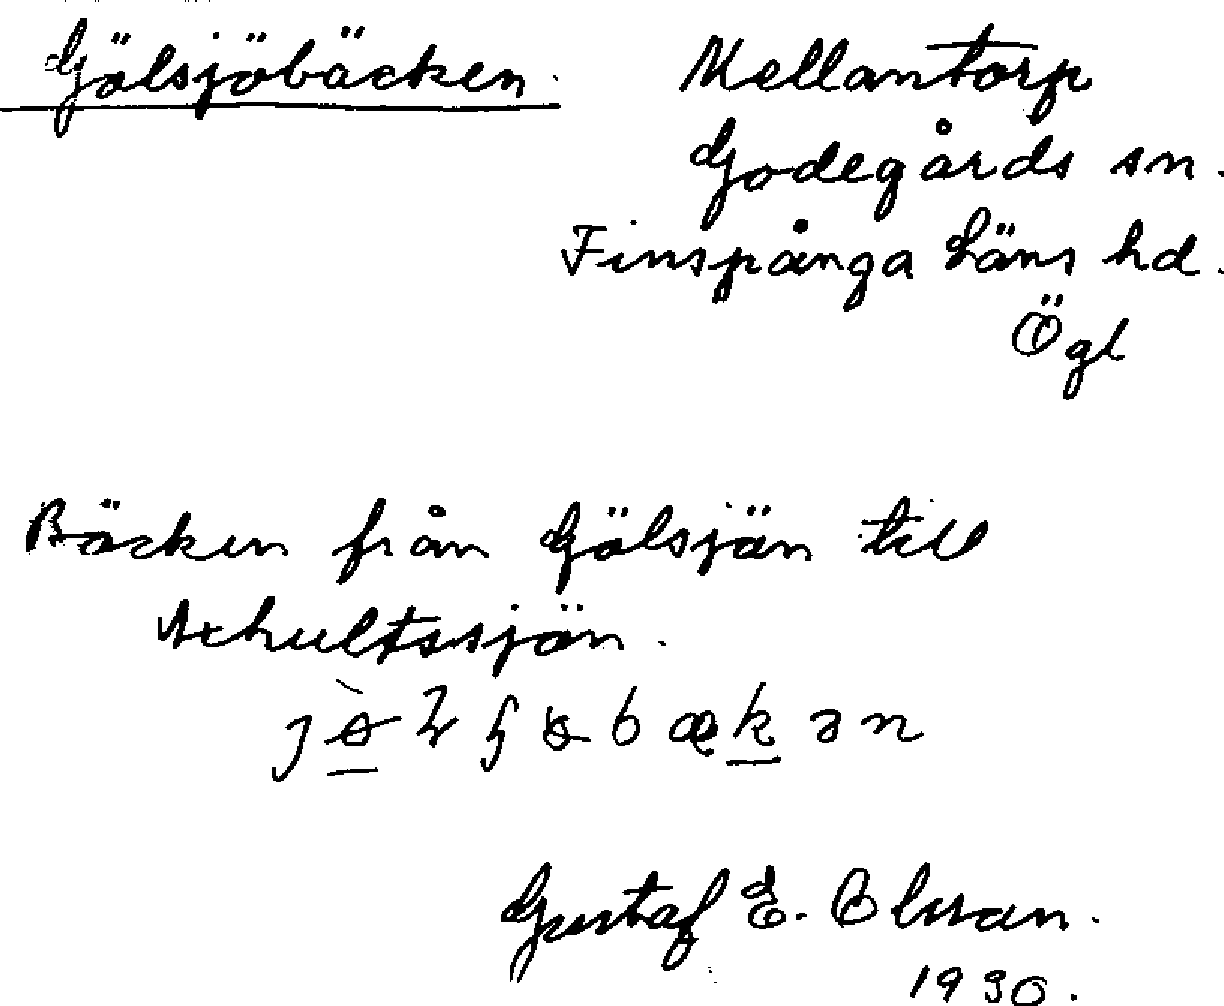 Gölsjöbäcken. Mellantorp
Godegårds sn.
Finspånga läns hd.
Ögl
Bäcken från Gölsjön till
sjön.
Gustaf E. Olsson.
1930.